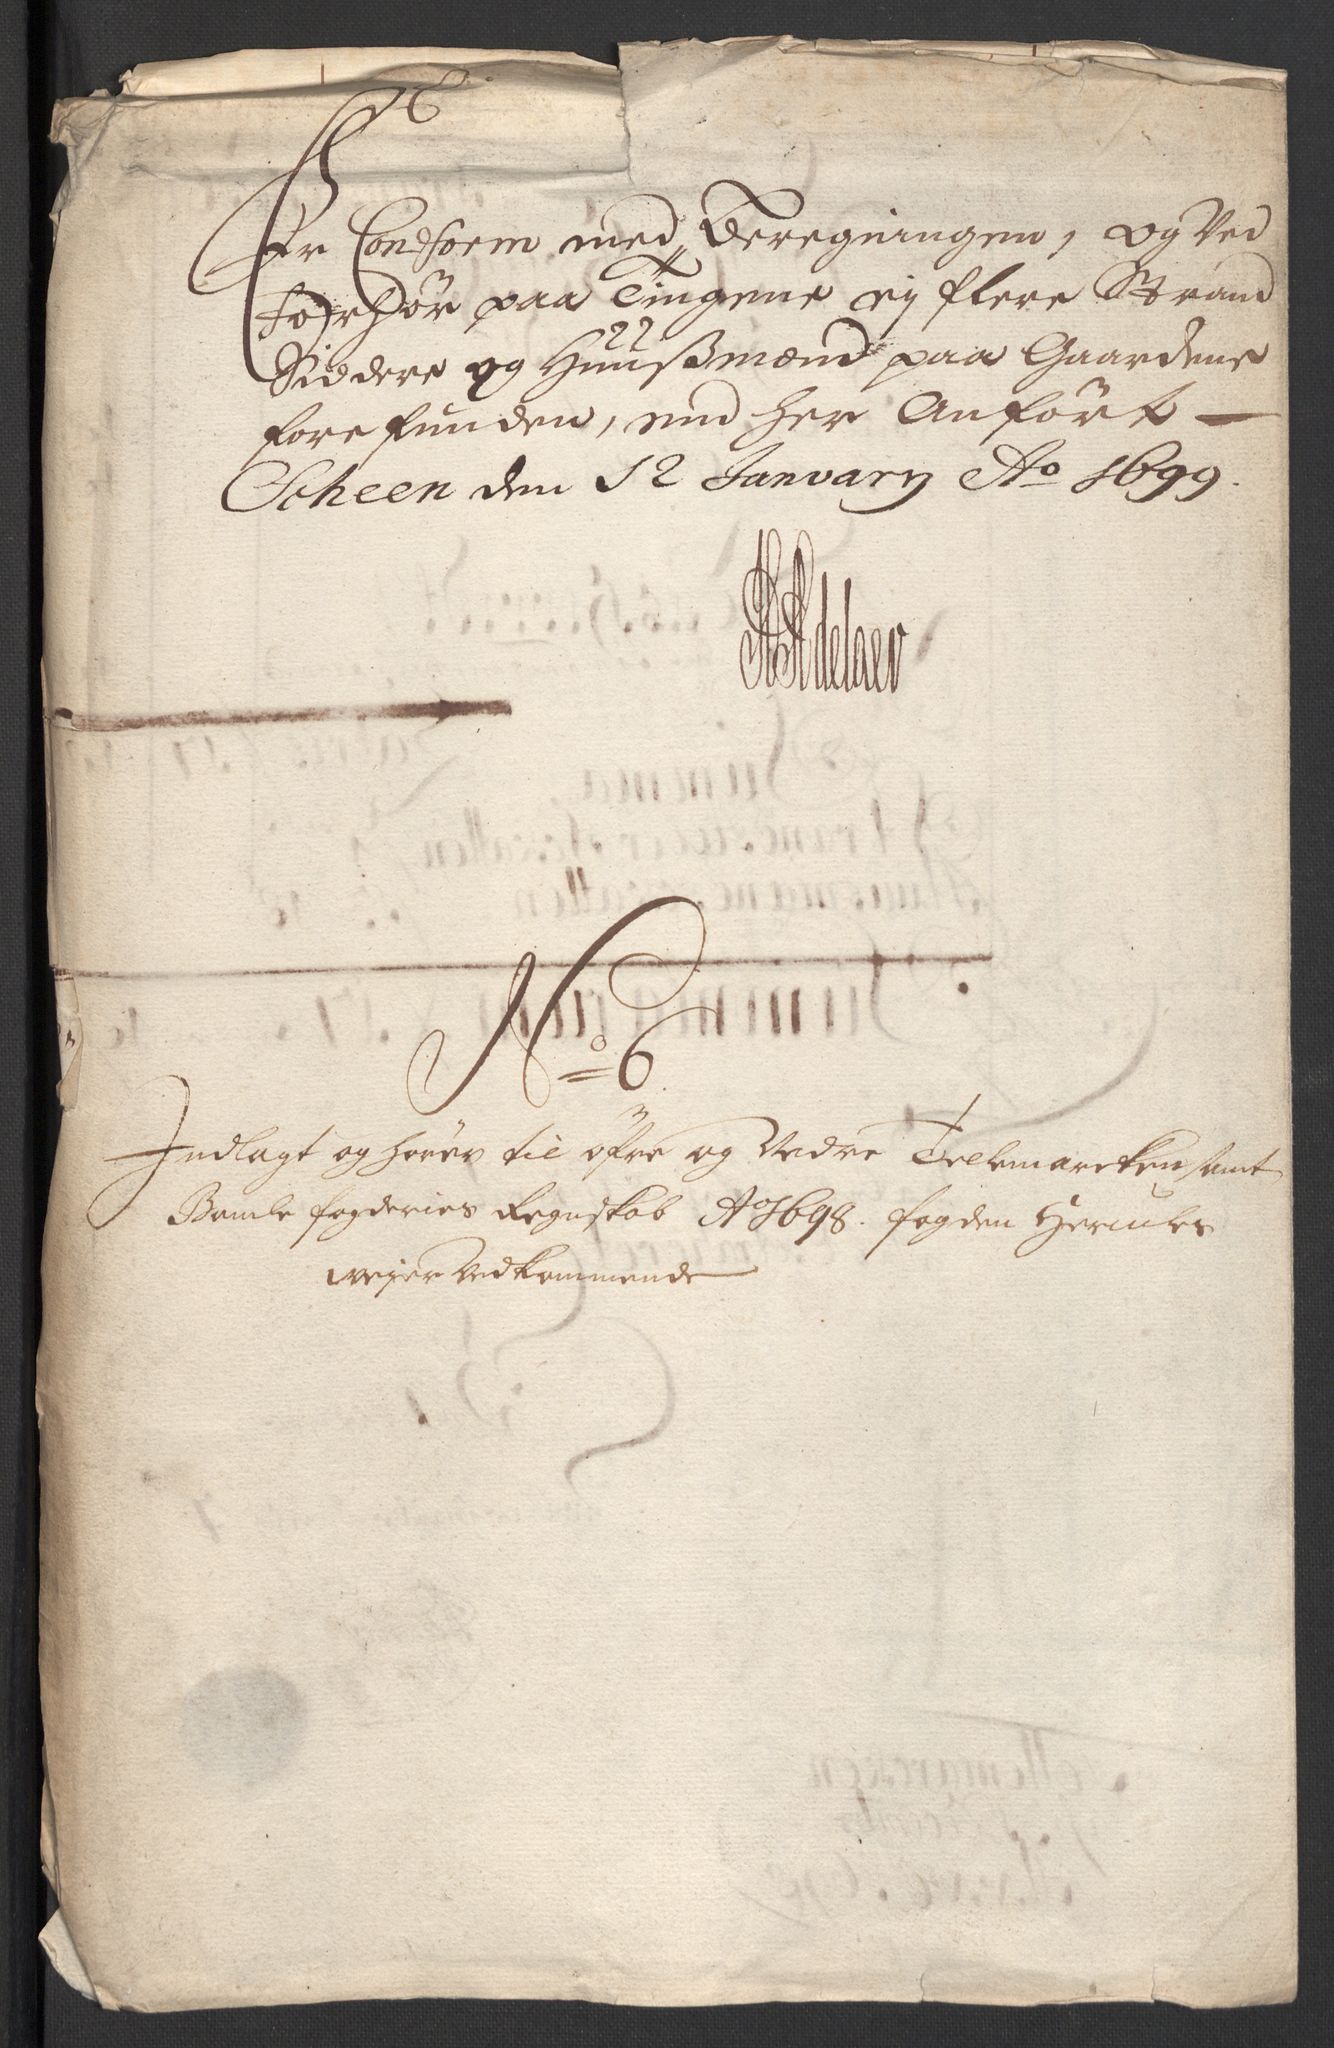 Er Conform med Beregningen, og Ved
forhör paa Tingene ej flere Strand
Siddere og Huußmænd paa Gaardene
forefunden, end her Anfört
Scheen den 12 January Ao 1699.
Adelaer
No 6
Indlagt og hörer til öfre og Nedre Tellemarcken samt
Bamle fogderies Regnskab Ao 1698. fogden Hercules
weyer vedkommende